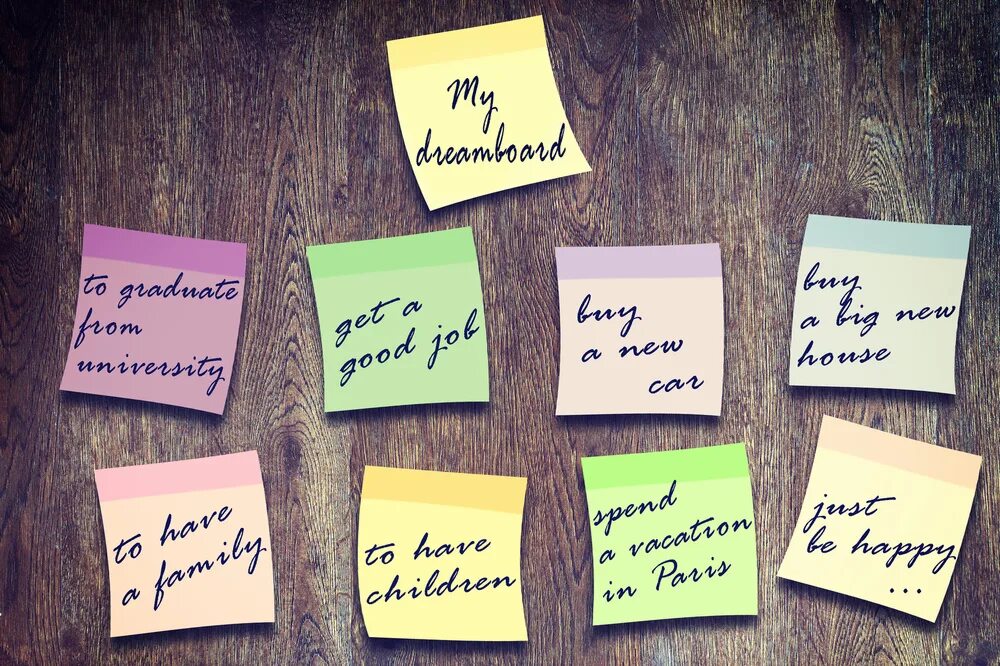 My
dreamboard
to graduate
from
university
get a
good job
buy
a new
car
buy
a big new
house
to have
a family
to have
children
spend
a vacation
in Paris
just
be happy
...